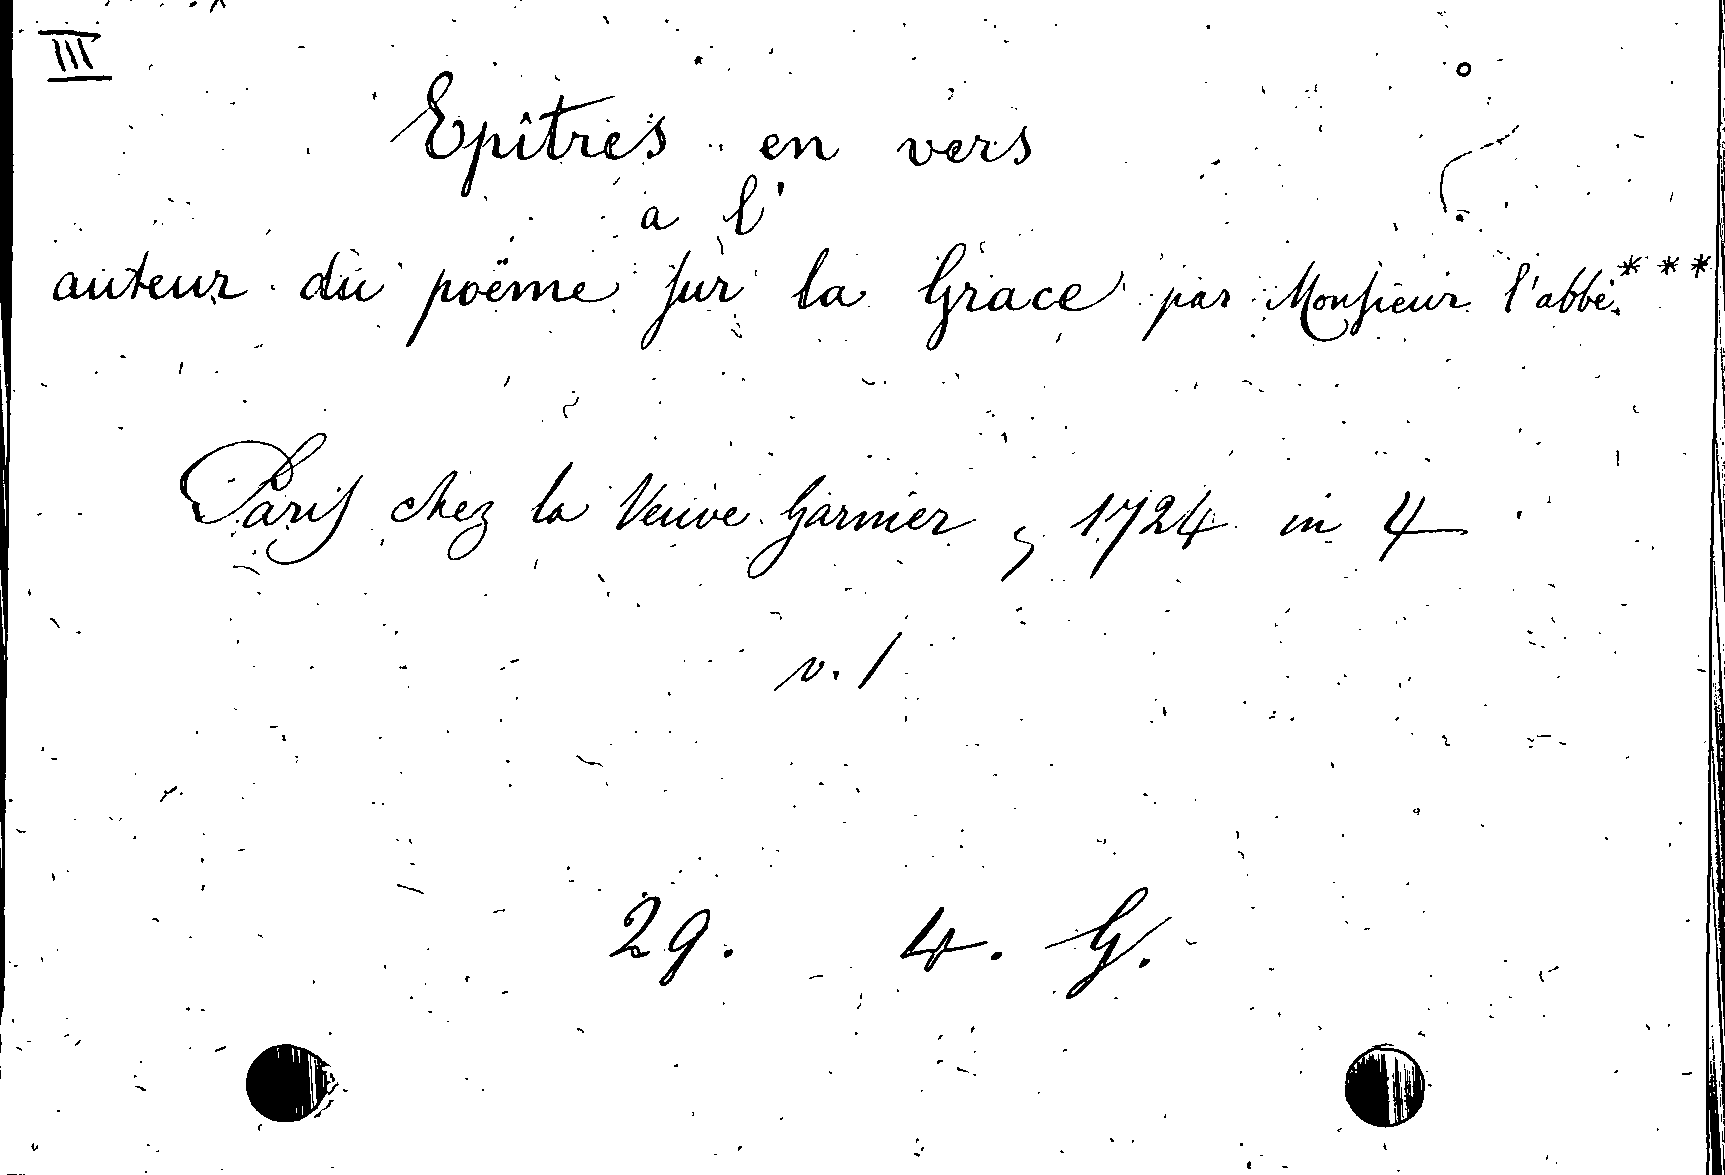 III
Epîtres en vers
a l'
auteur du poëme sur la Grace par Monsieur l'abbé ***
Paris chez la Veuve Garnier, 1724 in 4
v. 1
29. 4. G.